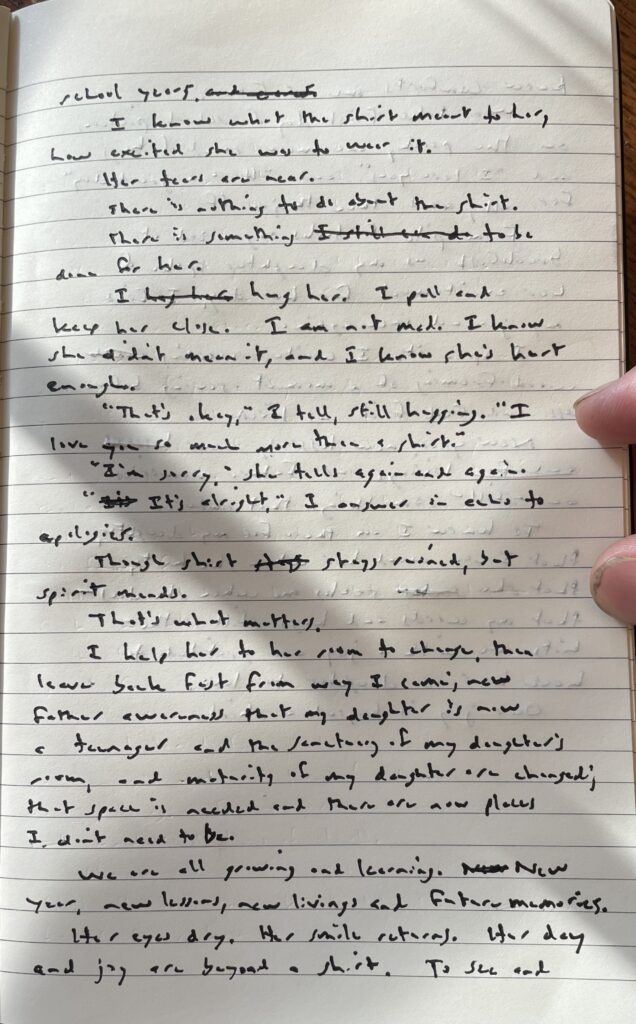 school years. and
I know what the shirt meant to her,
how excited she was to wear it.
Her tears are near.
There is nothing to do about the shirt.
There is something I still can do to be
done for her.
I hug her. I pull and
keep her close. I am not mad. I know
she didn't mean it, and I know she's hurt
enough.
"That's okay," I tell, still hugging. "I
love you so much more than a shirt."
"I'm sorry," she tells again and again.
"It's alright," I answer in echo to
apologies.
Though shirt stays ruined, but
spirit mends.
That's what matters.
I help her to her room to change, then
leave back fast from way I came; new
father awareness that my daughter is now
a teenager and the sanctuary of my daughter's
room, and maturity of my daughter are changed;
that space is needed and there are now places
I don't need to be.
We are all growing and learning. New New
year, new lessons, new livings and future memories.
Her eyes dry. Her smile returns. Her day
and joy are beyond a shirt. To see and